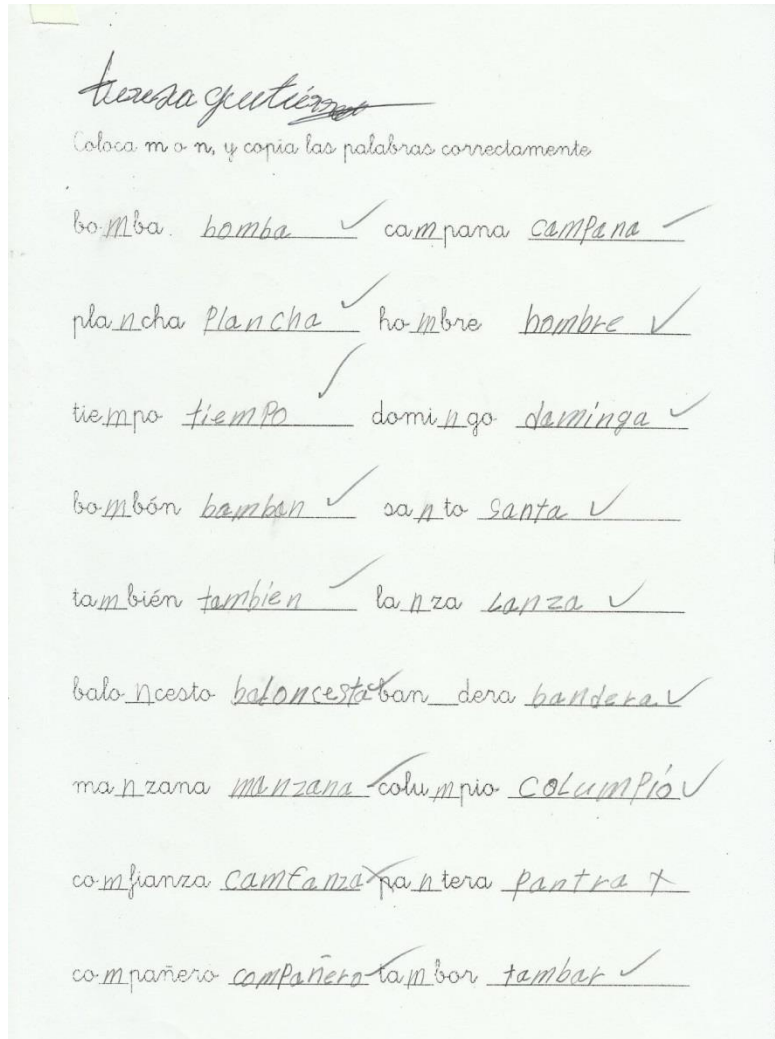 teresa gutiérrez
Coloca m o n, y copia las palabras correctamente
bo m ba. bomba ✓ ca m pana campana ✓
pla n cha plancha ✓ ho m bre hombre ✓
tie m po tiempo ✓ domi n go daminga ✓
bo m bón bambon ✓ sa n to santa ✓
ta m bién tambien ✓ la n za lanza ✓
balo n cesto baloncesta ✓ ban__dera bandera ✓
ma n zana manzana ✓ colu m pio columpió ✓
co m fianza camfanza x pa n tera pantra x
co m pañero compañero ✓ ta m bor tambar ✓